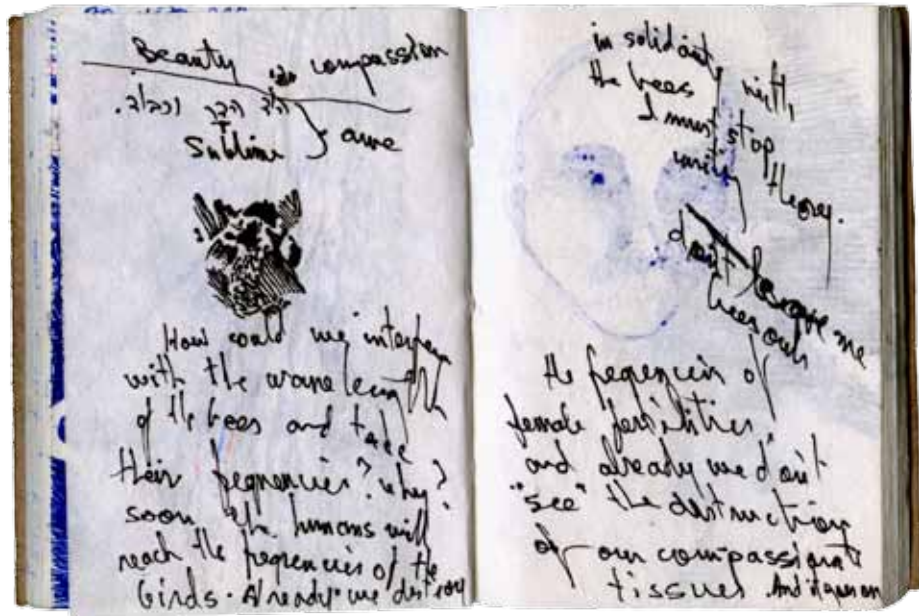 Beauty compassion
הוד הדר
Sublime } awe
How could we interfere
with the wave length
of the bees and take
their frequencies? why?
soon the humans will
reach the frequencies of the
birds. Already we destroy
in solidarity with
the bees
I must stop
writing theory.
don't leave me
bees our
the frequencies of
female fertilities,
and already we don't
"see" the destruction
of our compassionate
tissues. And it goes on